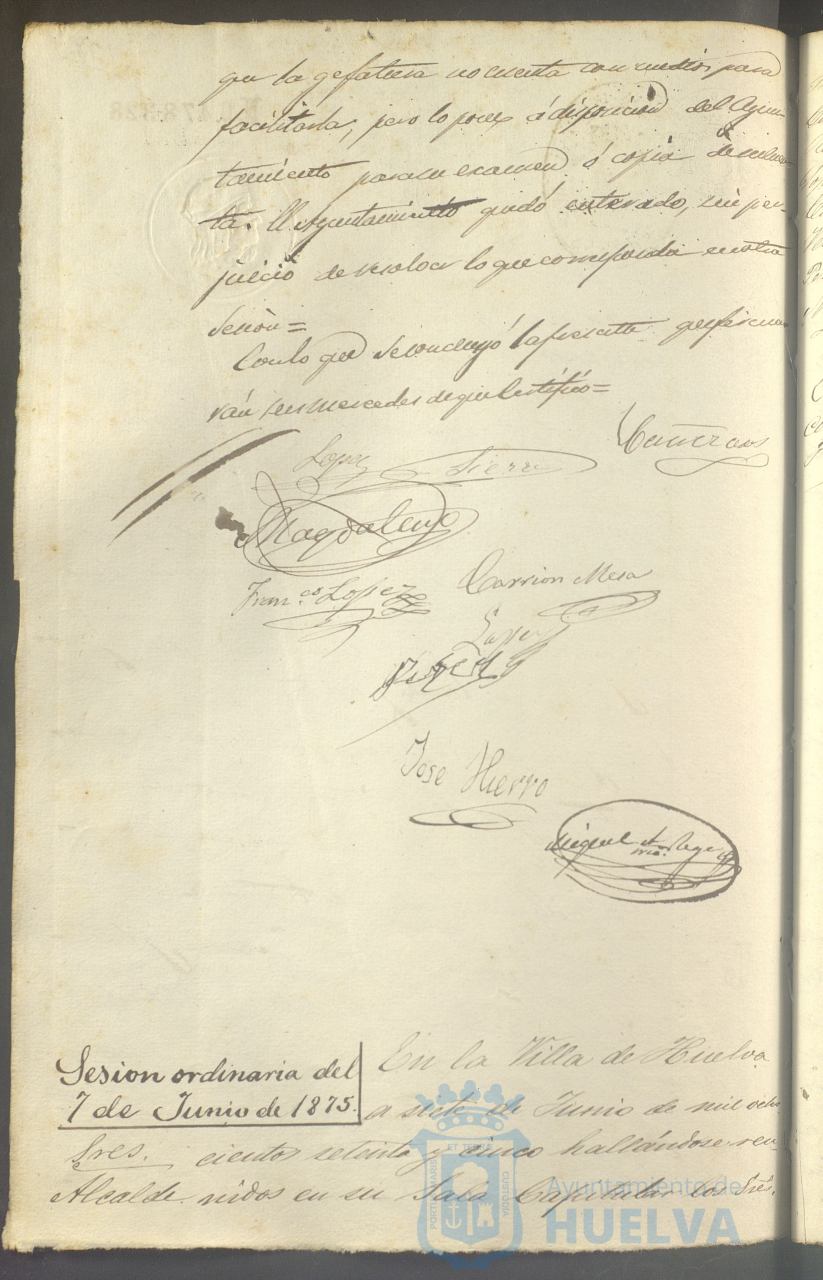 que la gefatura no cuenta con medios para
facilitarla, pero lo pone á disposicion del Ayun-
tamiento para su examen ó copia
ta. El Ayuntamiento quedó enterado, sin per-
juicio de resolver lo que corresponda en otra
sesion=
Con lo que se concluyó la presente que firma-
rán sus mercedes de que Certifico=
Lopez Sierra
Magdaleno
Fran.co Lopez
Carrion Mesa
Jose Hierro
Miguel
Sesion ordinaria del
7 de Junio de 1875.
En la Villa de Huelva
a siete de Junio de mil ocho
Sres. cientos setenta y cinco hallándose reu
Alcalde nidos en su Sala Capitular los Sres.
PORTUS MARIS ET TERRE CUSTODIA
Ayuntamiento de
HUELVA